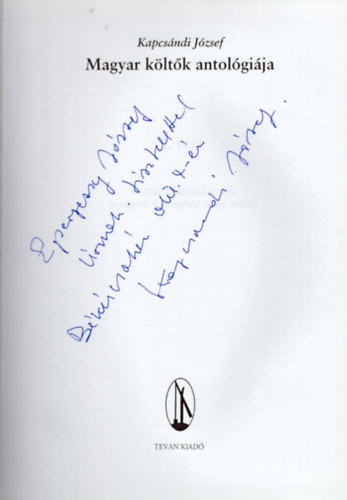 Kapcsándi József
Magyar költők antológiája
József
Úrnak tisztelettel
Békéscsaba
Kapcsándi József.
TEVAN KIADÓ